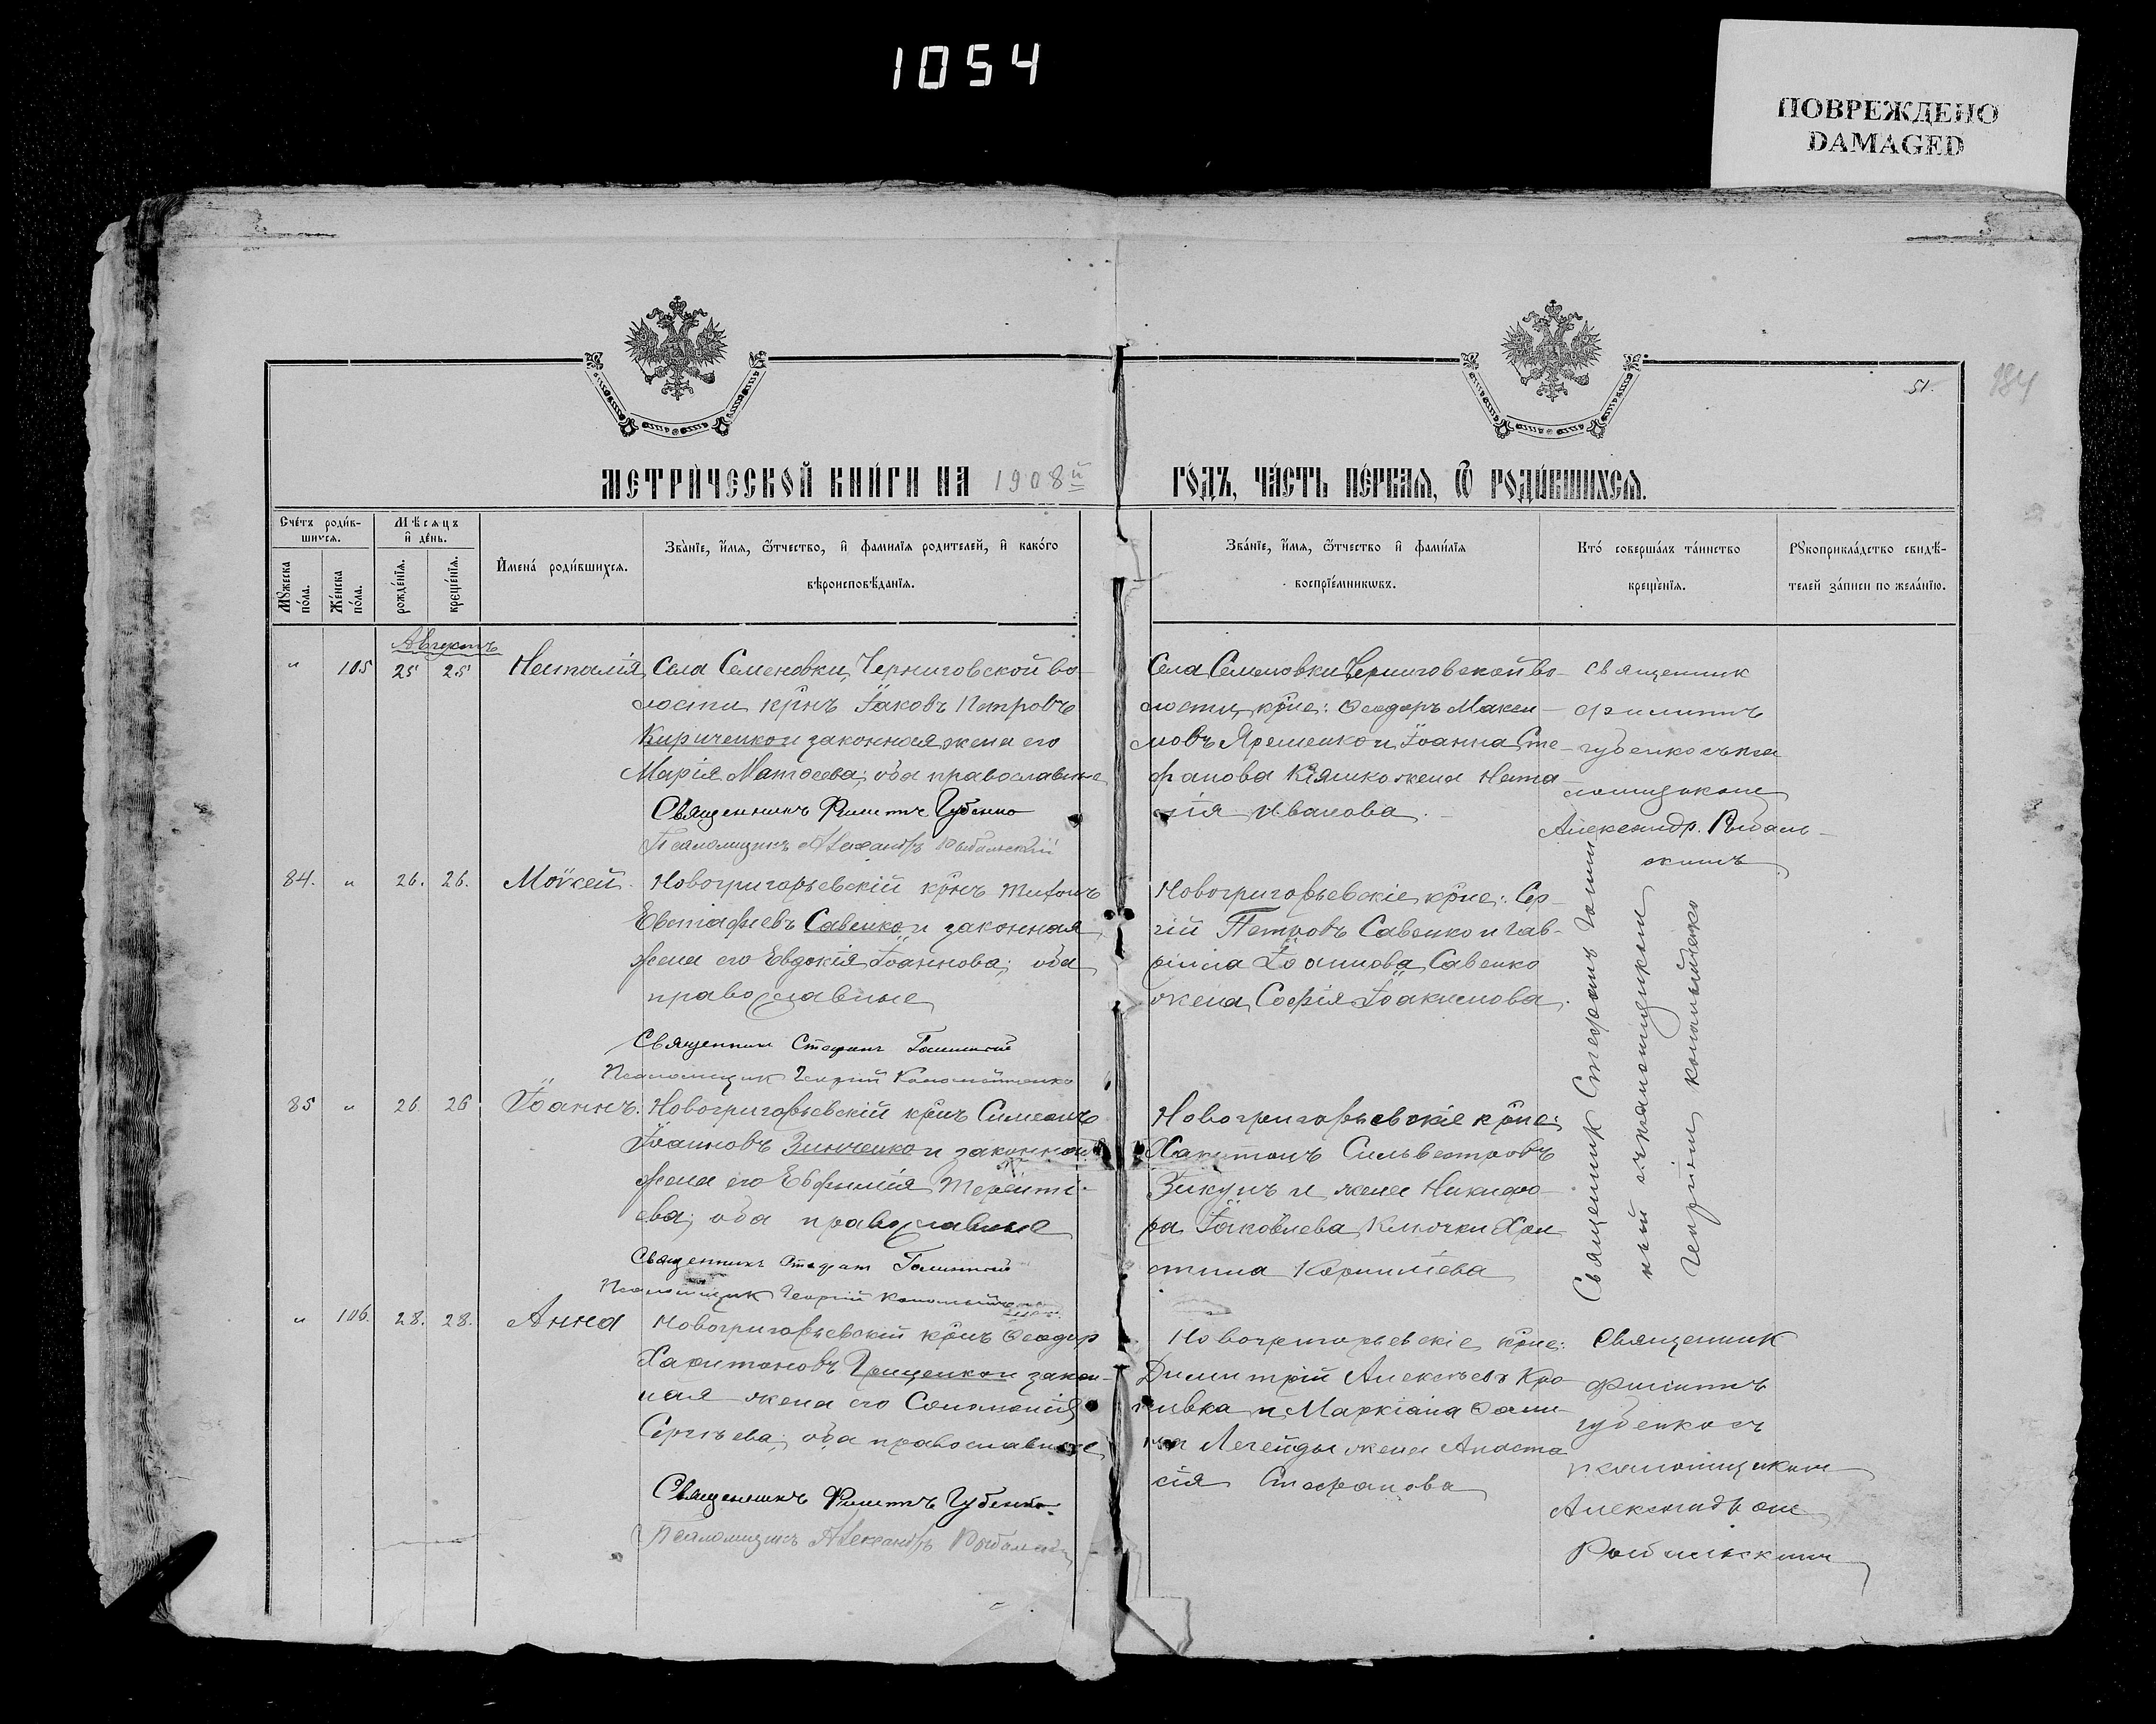 1054
ПОВРЕЖДЕНО
DAMAGED
51.
184
МЕТРИ́ЧЕСКОЙ КНИ́ГИ НА 1908й ГО́ДЪ, ЧА́СТЬ ПЕ́РВАѦ, Ѿ РОДИ́ВШИХСѦ.
Сче́тъ роди́в-
шихся.
Мꙋ́жеска по́ла.
Же́нска по́ла.
Мѣ́сѧцъ
и҆ де́нь.
рожде́нїѧ.
креще́нїѧ.
И҆мена̀ роди́вшихсѧ.
Зва́нїе, и҆́мѧ, ѻ҆́тчество, и҆ фами́лїѧ роди́телей, и҆ како́гѡ
вѣроисповѣ́данїѧ.
Зва́нїе, и҆́мѧ, ѻ҆́тчество и҆ фами́лїѧ
воспрїе́мникѡвъ.
Кто̀ соверша́лъ та́инство
креще́нїѧ.
Рꙋкоприкла́дство свидѣ́-
телей за́писи по жела́нїю.
Августъ
" 105 25 25 Наталія Села Семеновки, Черниговской во-
лости крнъ Іаковъ Петровъ
Кириченко и законная жена его
Марія Матѳеева; оба православные
Священникъ Филиппъ Губенко
Псаломщикъ Александръ Рыбальскій
Села Семеновки Черниговской во-
лости, крне: Ѳеодоръ Макси-
мовъ Яременко и Іоанна Сте-
фанова Кіяшко жена Ната-
лія Иванова.
Священник
Филиппъ
Губенко съ пса
ломщиком
Александр. Рыбаль-
скимъ
84. " 26. 26. Моѵсей. Новогригорьевскій крнъ Тихонъ
Евстафіевъ Савенко и законная
жена его Евдокія Іоаннова; оба
православные
Священник Стефанъ Голинскій
Псаломщик Георгій Коломойченко
Новогригорьевскіе крне: Сер-
гій Петровъ Савенко и Гав-
ріила Іоаннова Савенко
жена Софія Іоакимова.
Священник Стефанъ Голин
кій с псаломщиком
Георгіем Коломойченко
85 " 26. 26 Іоаннъ. Новогригорьевскій крнъ Симеонъ
Іоанновъ Зинченко и законная
жена его Евфимія Теренті-
ева; оба православные
Священникъ Стефанъ Голинскій
Псаломщик Георгій Коломойченко
Новогригорьевскіе крне:
Харитонъ Сильвестровъ
Зикунъ и жена Никифо-
ра Іаковлева Клочки Хри-
стина Корниліева
" 106. 28. 28. Анна Новогригорьевскій крнъ Ѳеодор
Харитоновъ Грищенко и закон-
ная жена его Соломонія
Сергіева; оба православные
Священникъ Филиппъ Губенко.
Псаломщикъ Александръ Рыбальскій
Новогригорьевскіе крне:
Димитрій Алексіевъ Кро-
пивка и Маркіана Ѳоми-
на Легейды жена Анаста
сія Стефанова
Священник
Филиппъ
Губенко съ
псаломщиком
Александром
Рыбальским